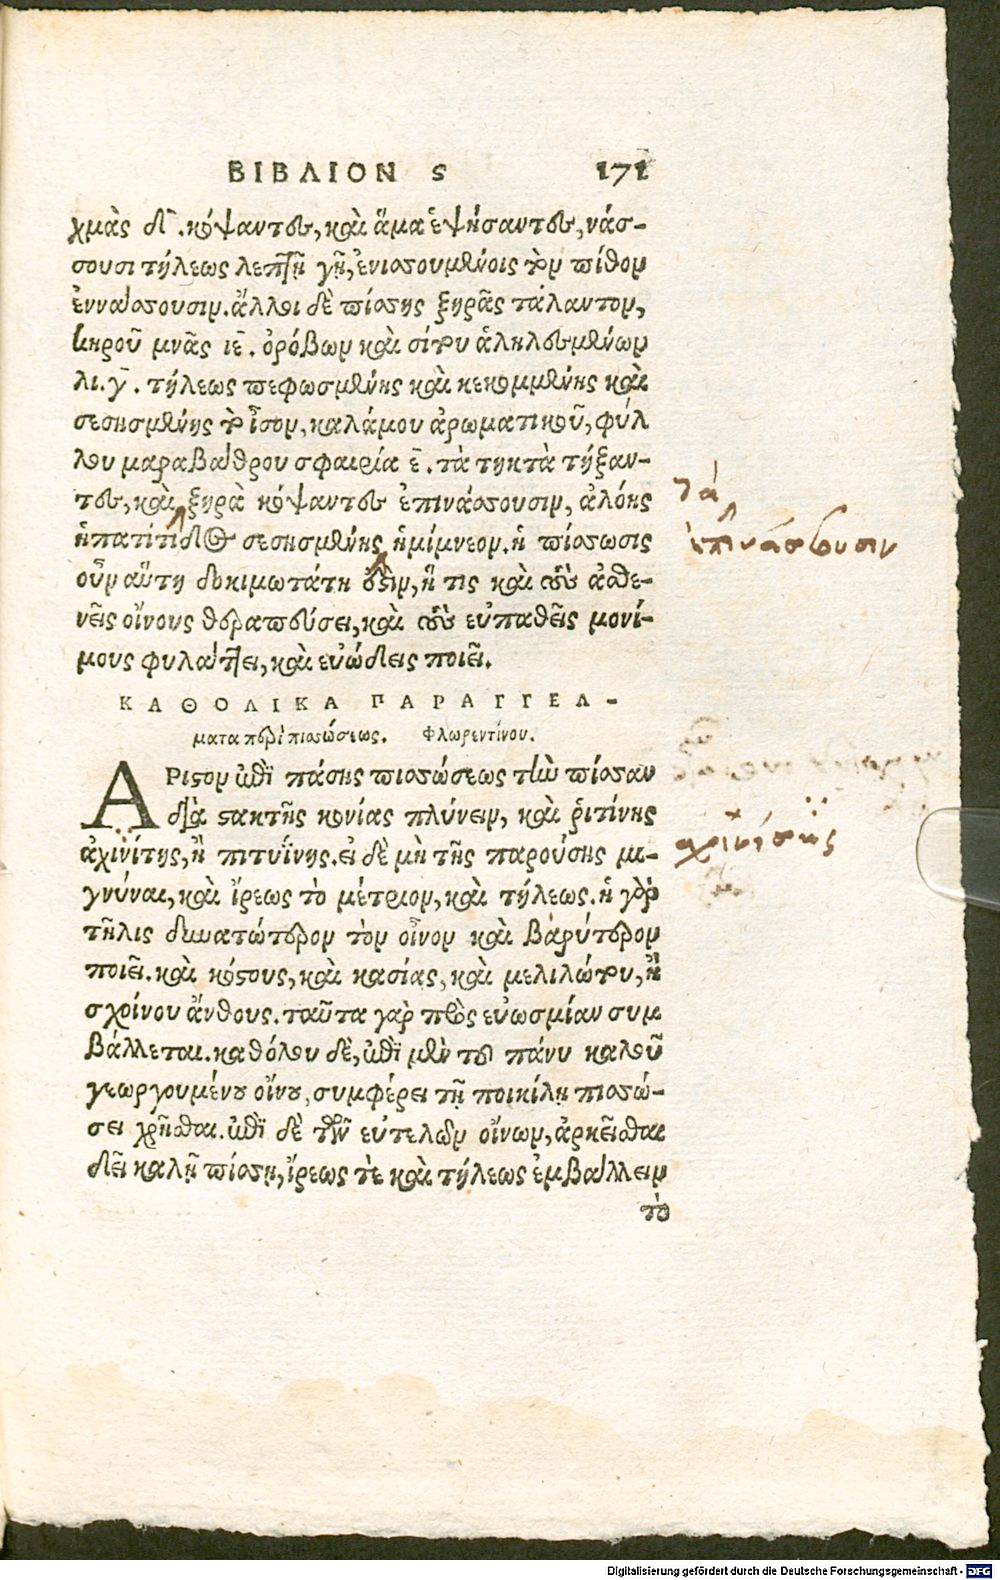 ΒΙΒΛΙΟΝ ϛ 171
χμὰς δ̄. κόψαντες, καὶ ἅμα ἑψήσαντες, νάσ-
σουσι τήλεως λεπτῇ γῇ, ἐνιασουμένοις τὸν πίθον
ἐννάσσουσιν. ἄλλοι δὲ πίσσης ξηρᾶς τάλαντον,
κηροῦ μνᾶς ιε̄. ὀρόβων καὶ σίτου ἀληλεσμένων
λι. γ̄. τήλεως πεφωσμένης καὶ κεκομμένης καὶ
σεσησμένης τὸ ἶσον, καλάμου ἀρωματικοῦ, φύλ
λου μαραβάθρου σφαιρία ε̄. τὰ τηκτὰ τήξαν-
τες, καὶ ξηρὰ κόψαντες ἐπινάσσουσιν, ἀλόης
τὰ
ἡπατίτιδος σεσησμένης ἡμίμνεον. ἡ πίσσωσις
ἐπινάσσουσιν
οὖν αὕτη δοκιμωτάτη ὅστιν, ἥ τις καὶ τοὺς ἀσθε-
νεῖς οἴνους θεραπεύσει, καὶ τοὺς εὐπαθεῖς μονί-
μους φυλάττει, καὶ εὐώδεις ποιεῖ.
ΚΑΘΟΛΙΚΑ ΠΑΡΑΓΓΕΛ-
ματα περὶ πισσώσεως. Φλωρεντίνου.
ΑΡιστον ἐπὶ πάσης πισσώσεως τὴν πίσσαν
διὰ στακτῆς κονίας πλύνειν, καὶ ῥιτίνης
ἀχινίτης, ἢ πιτυΐνης. εἰ δὲ μὴ τῆς παρούσης μι-
γνύναι, καὶ ἴρεως τὸ μέτριον, καὶ τήλεως. ἡ γὰρ
τῆλις δυνατώτερον τὸν οἶνον καὶ βαρύτερον
ποιεῖ. καὶ κόστους, καὶ κασίας, καὶ μελιλώτου, ἢ
σχοίνου ἄνθους. ταῦτα γὰρ πρὸς εὐωσμίαν συμ
βάλλεται. καθόλου δὲ, ἐπὶ μὲν τοῦ πάνυ καλοῦ
γεωργουμένου οἴνου, συμφέρει τῇ ποικίλῃ πισσώ-
σει χρῆσθαι. ἐπὶ δὲ τῶν εὐτελῶν οἴνων, ἀρκεῖσθαι
δεῖ καλῇ πίσσῃ, ἴρεως τὲ καὶ τήλεως ἐμβάλλειν
τὸ
Digitalisierung gefördert durch die Deutsche Forschungsgemeinschaft - DFG